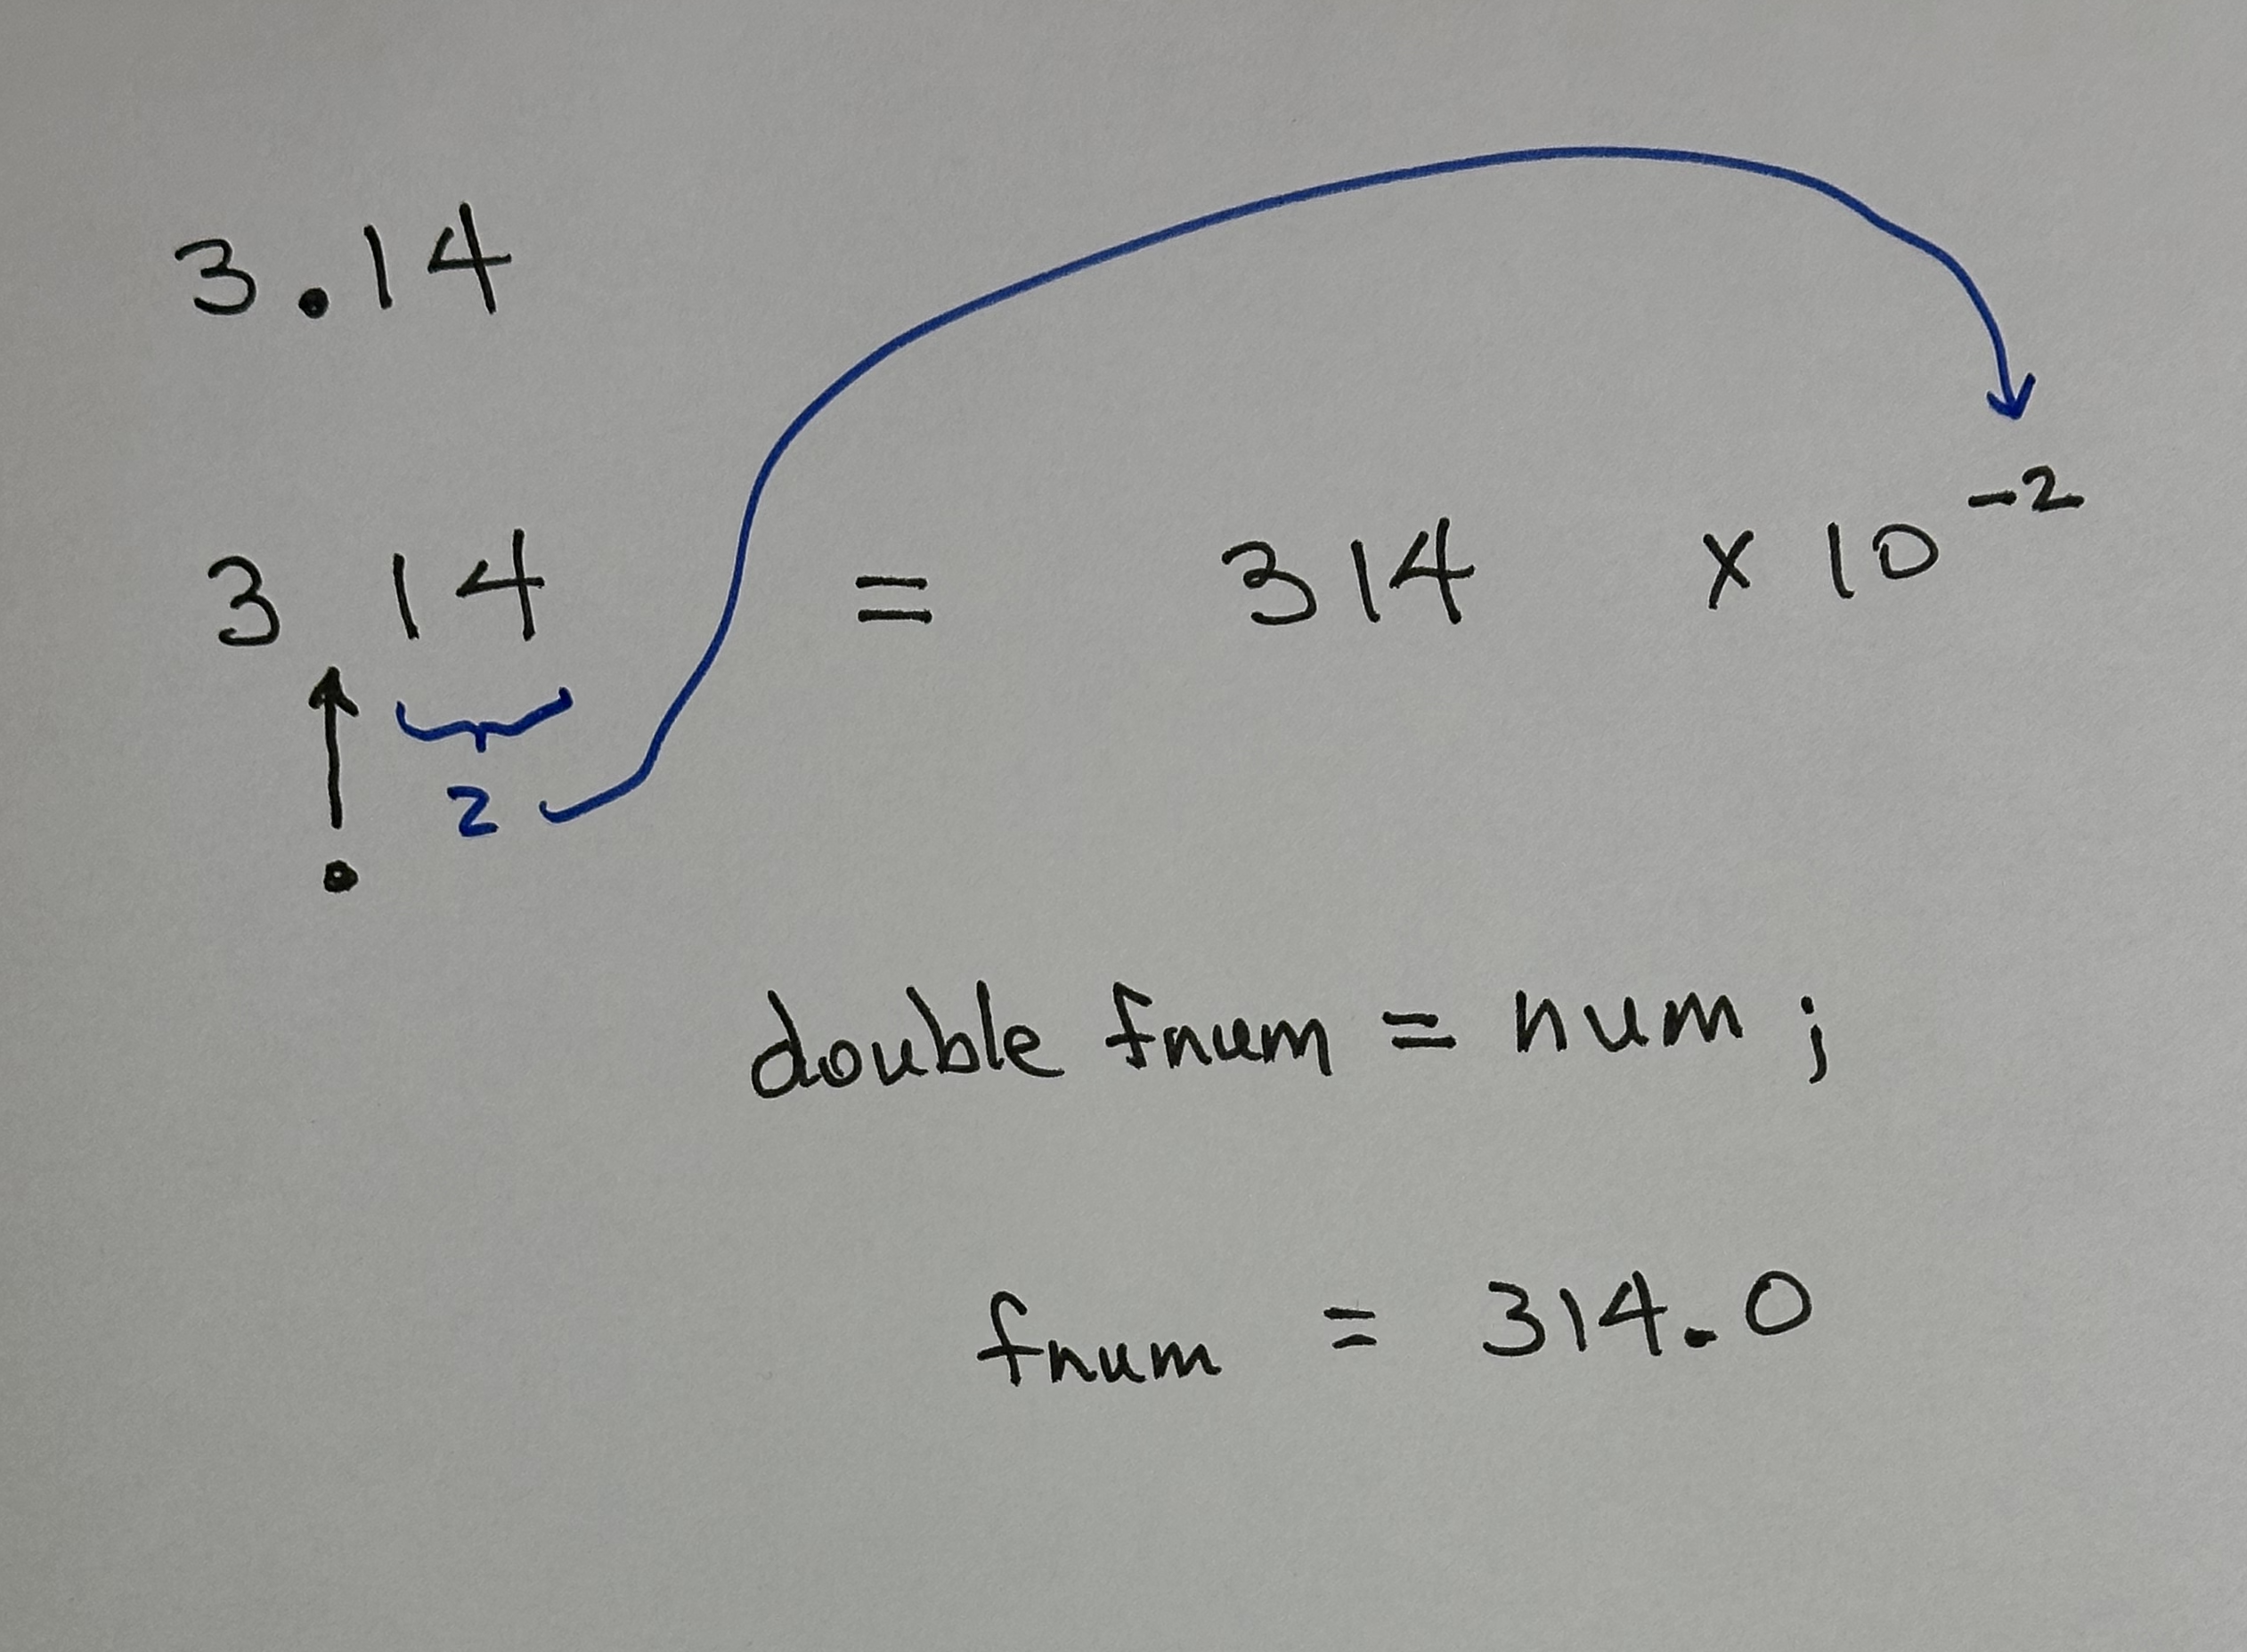 3.14
3 14 = 314 x 10⁻²
2
.
double fnum = num ;
fnum = 314.0